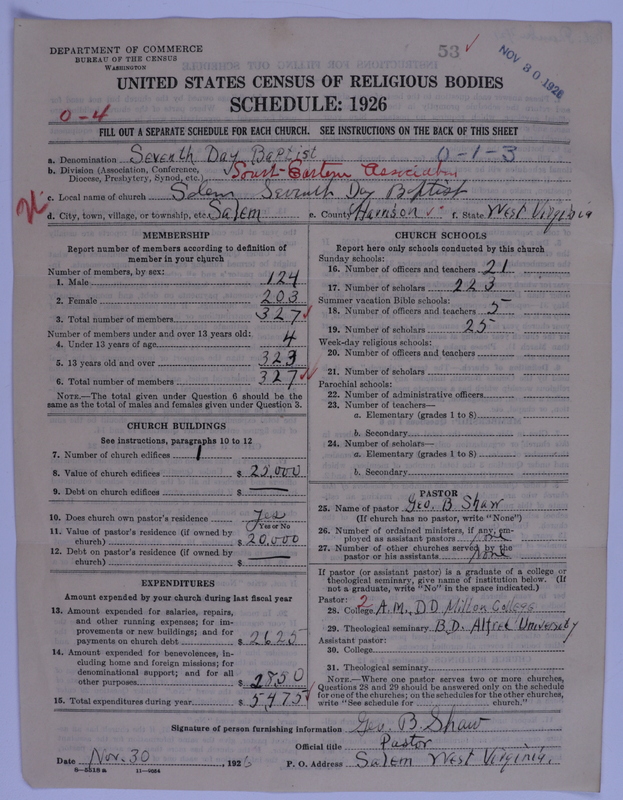 DEPARTMENT OF COMMERCE
BUREAU OF THE CENSUS
WASHINGTON
53
NOV 30 1926
UNITED STATES CENSUS OF RELIGIOUS BODIES
SCHEDULE: 1926
0-4
FILL OUT A SEPARATE SCHEDULE FOR EACH CHURCH. SEE INSTRUCTIONS ON THE BACK OF THIS SHEET
a. Denomination Seventh Day Baptist 0-1-3
b. Division (Association, Conference, Diocese, Presbytery, Synod, etc.) South-Eastern Association
c. Local name of church Salem Seventh Day Baptist
d. City, town, village, or township, etc. Salem e. County Harrison f. State West Virginia
MEMBERSHIP
Report number of members according to definition of member in your church
Number of members, by sex:
1. Male 124
2. Female 203
3. Total number of members 327
Number of members under and over 13 years old:
4. Under 13 years of age 4
5. 13 years old and over 323
6. Total number of members 327
NOTE.—The total given under Question 6 should be the same as the total of males and females given under Question 3.
CHURCH BUILDINGS
See instructions, paragraphs 10 to 12
7. Number of church edifices 1
8. Value of church edifices $ 25,000
9. Debt on church edifices $ —
10. Does church own pastor's residence Yes
Yes or No
11. Value of pastor's residence (if owned by church) $ 20,000
12. Debt on pastor's residence (if owned by church) $ —
EXPENDITURES
Amount expended by your church during last fiscal year
13. Amount expended for salaries, repairs, and other running expenses; for improvements or new buildings; and for payments on church debt $ 2625
14. Amount expended for benevolences, including home and foreign missions; for denominational support; and for all other purposes $ 2850
15. Total expenditures during year $ 5475
CHURCH SCHOOLS
Report here only schools conducted by this church
Sunday schools:
16. Number of officers and teachers 21
17. Number of scholars 223
Summer vacation Bible schools:
18. Number of officers and teachers 5
19. Number of scholars 25
Week-day religious schools:
20. Number of officers and teachers
21. Number of scholars
Parochial schools:
22. Number of administrative officers
23. Number of teachers—
a. Elementary (grades 1 to 8)
b. Secondary
24. Number of scholars—
a. Elementary (grades 1 to 8)
b. Secondary
PASTOR
25. Name of pastor Geo. B Shaw
(If church has no pastor, write "None")
26. Number of ordained ministers, if any, employed as assistant pastors none
27. Number of other churches served by the pastor or his assistants none
If pastor (or assistant pastor) is a graduate of a college or theological seminary, give name of institution below. (If not a graduate, write "No" in the space indicated.)
Pastor: 2
28. College A.M., DD Milton College
29. Theological seminary B.D. Alfred University
Assistant pastor:
30. College
31. Theological seminary
NOTE.—Where one pastor serves two or more churches, Questions 28 and 29 should be answered only on the schedule for one of the churches; on the schedules for the other churches, write "See schedule for church."
Signature of person furnishing information Geo. B. Shaw
Official title Pastor
Date Nov. 30, 1926 P. O. Address Salem West Virginia.
8-5518a 11-9034